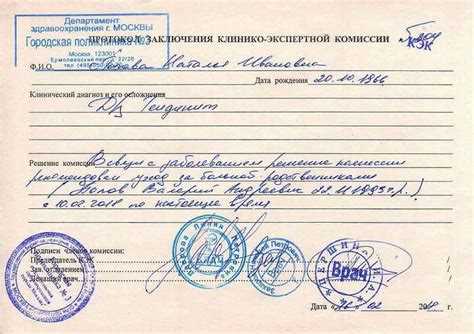 Департамент
здравоохранения г. МОСКВЫ
Городская поликлиника №3
Москва, 123001
Ермолаевский пер. 22/26
ПРОТОКОЛ ЗАКЛЮЧЕНИЯ КЛИНИКО-ЭКСПЕРТНОЙ КОМИССИИ №
КЭК
Ф.И.О. Попова Наталья Ивановна
Дата рождения 20.10.1966
Клинический диагноз и его осложнения
Ds Тендинит
Решение комиссии: В связи с заболеванием решение комиссии
рекомендован уход за больным родственниками
(Попов Валерий Андреевич 22.11.1993 г.р.)
с 10.02.2018 по настоящее время
Подписи членов комиссии:
Председатель КЭК
Зав. отделением
Лечащий врач:
ВРАЧ
Врач
ПЕРШИНА
Врач
Дата « 02